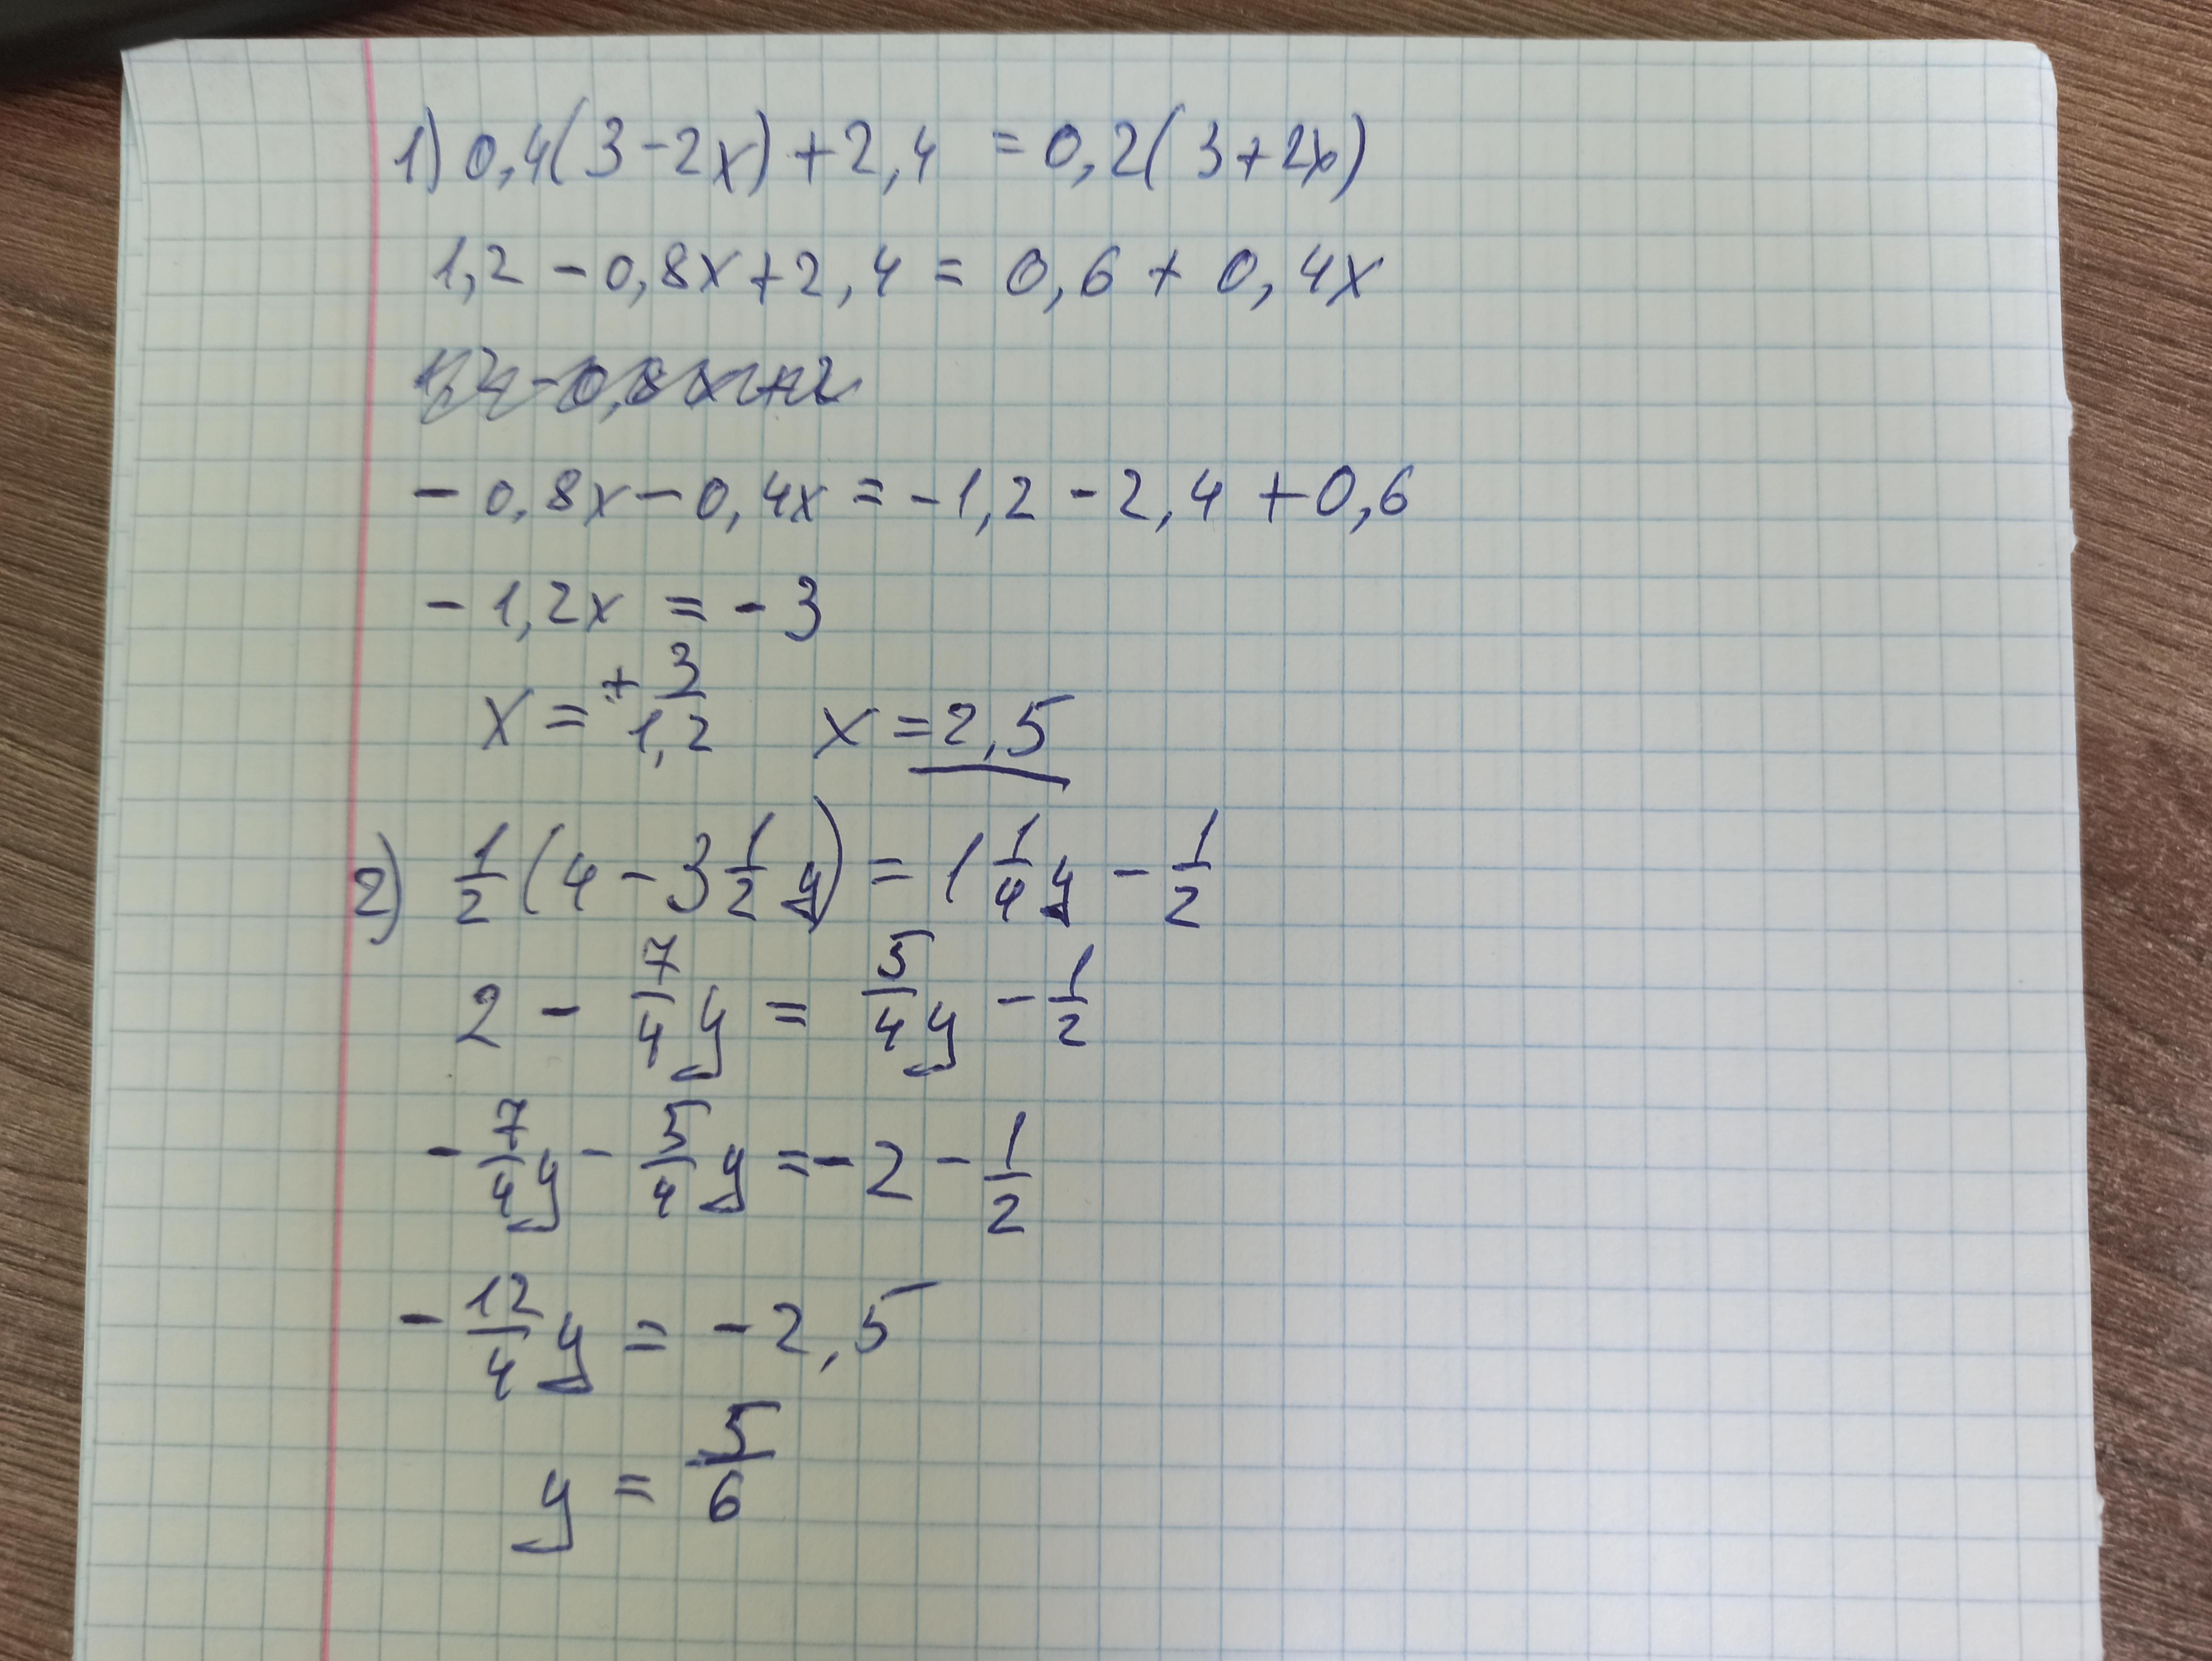 1) 0,4(3-2x)+2,4 = 0,2(3+2x)
1,2 - 0,8x+2,4 = 0,6 + 0,4x
- 0,8x - 0,4x = -1,2 - 2,4 + 0,6
- 1,2x = - 3
x = + 3/1,2 x = 2,5
2) 1/2 (4 - 3 1/2 y) = 1 1/4 y - 1/2
2 - 7/4 y = 5/4 y - 1/2
- 7/4 y - 5/4 y = - 2 - 1/2
- 12/4 y = - 2,5
y = 5/6